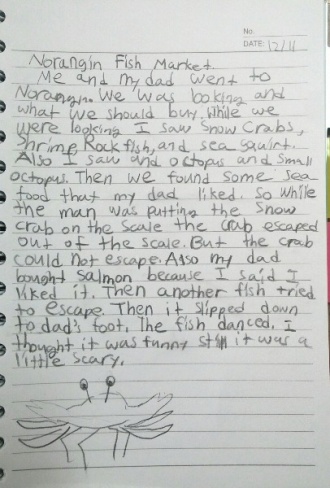 No.
DATE: 12/11
Norangin Fish Market.
Me and my dad went to
Norangin. We was looking and
what we should buy. While we
were looking I saw Snow Crabs,
Shrimp, Rock fish, and sea squirt.
Also I saw and octopus and small
octopus. Then we found some sea
food that my dad liked. So while
the man was putting the snow
crab on the scale the crab escaped
out of the scale. But the crab
could not escape. Also my dad
bought salmon because I said I
liked it. Then another fish tried
to escape. Then it slipped down
to dad's foot. The fish danced. I
thought it was funny still it was a
little scary.